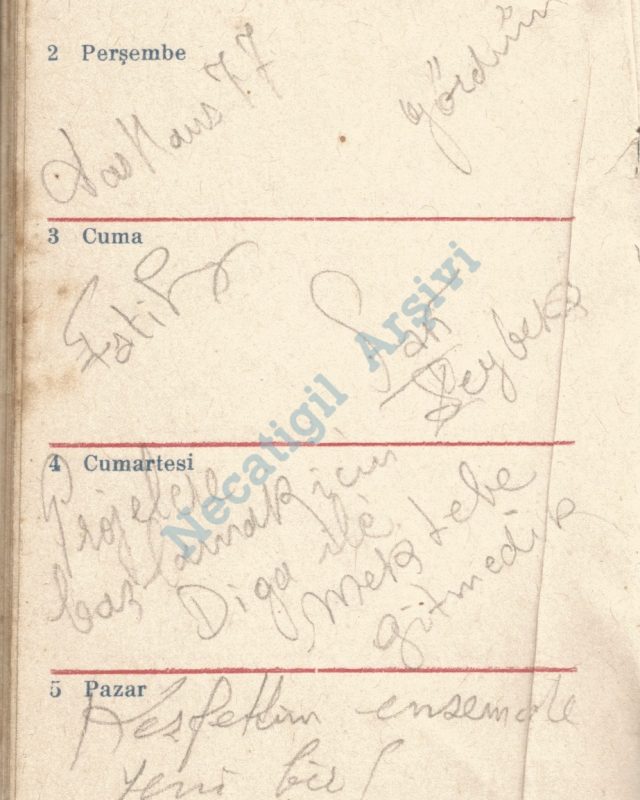 2 Perşembe
gördüm
Das Haus 77
3 Cuma
Fatih
Zeybek
4 Cumartesi
Projelere
başlamak için
Diga ile
mektebe
gitmedik
5 Pazar
Keşfettim ensemble
yeni bir
Necatigil Arşivi